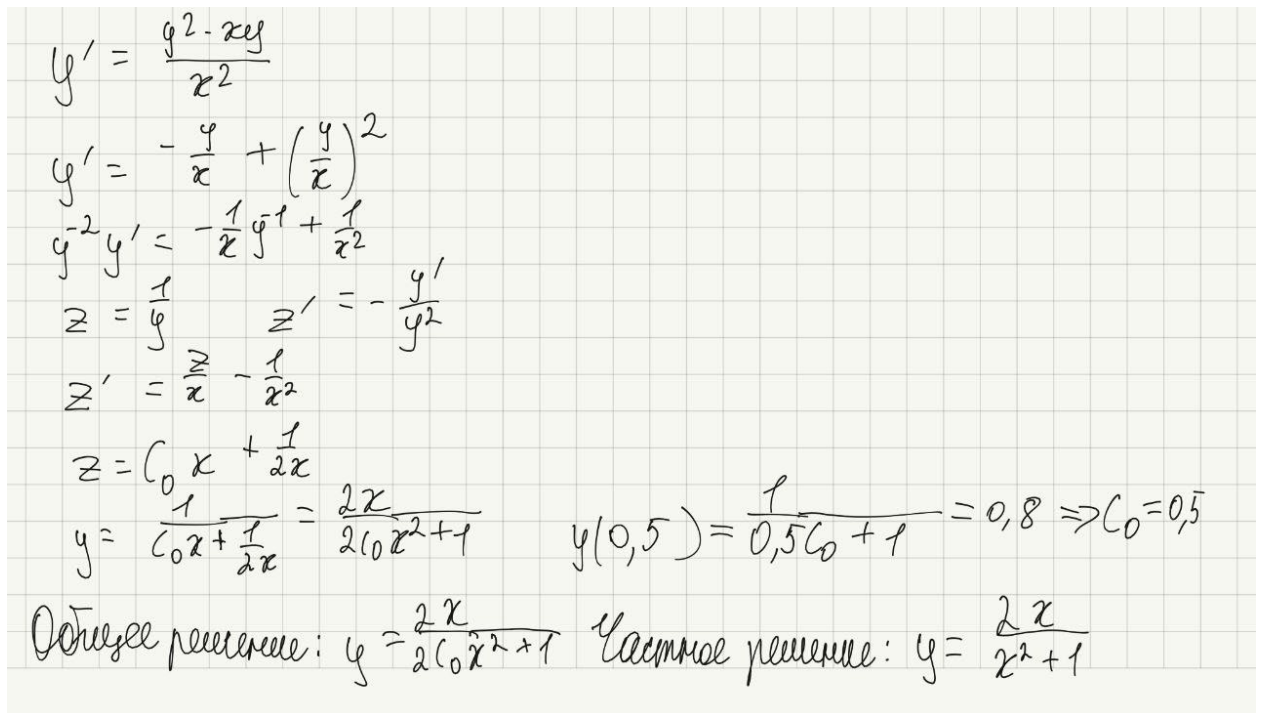 y' = (y² - xy)/x²
y' = -y/x + (y/x)²
y⁻² y' = -1/x y⁻¹ + 1/x²
z = 1/y z' = -y'/y²
z' = z/x - 1/x²
z = C₀ x + 1/2x
y = 1/(C₀x + 1/2x) = 2x/(2C₀x² + 1) y(0,5) = 1/(0,5C₀ + 1) = 0,8 => C₀ = 0,5
Общее решение: y = 2x/(2C₀x² + 1) Частное решение: y = 2x/(x² + 1)